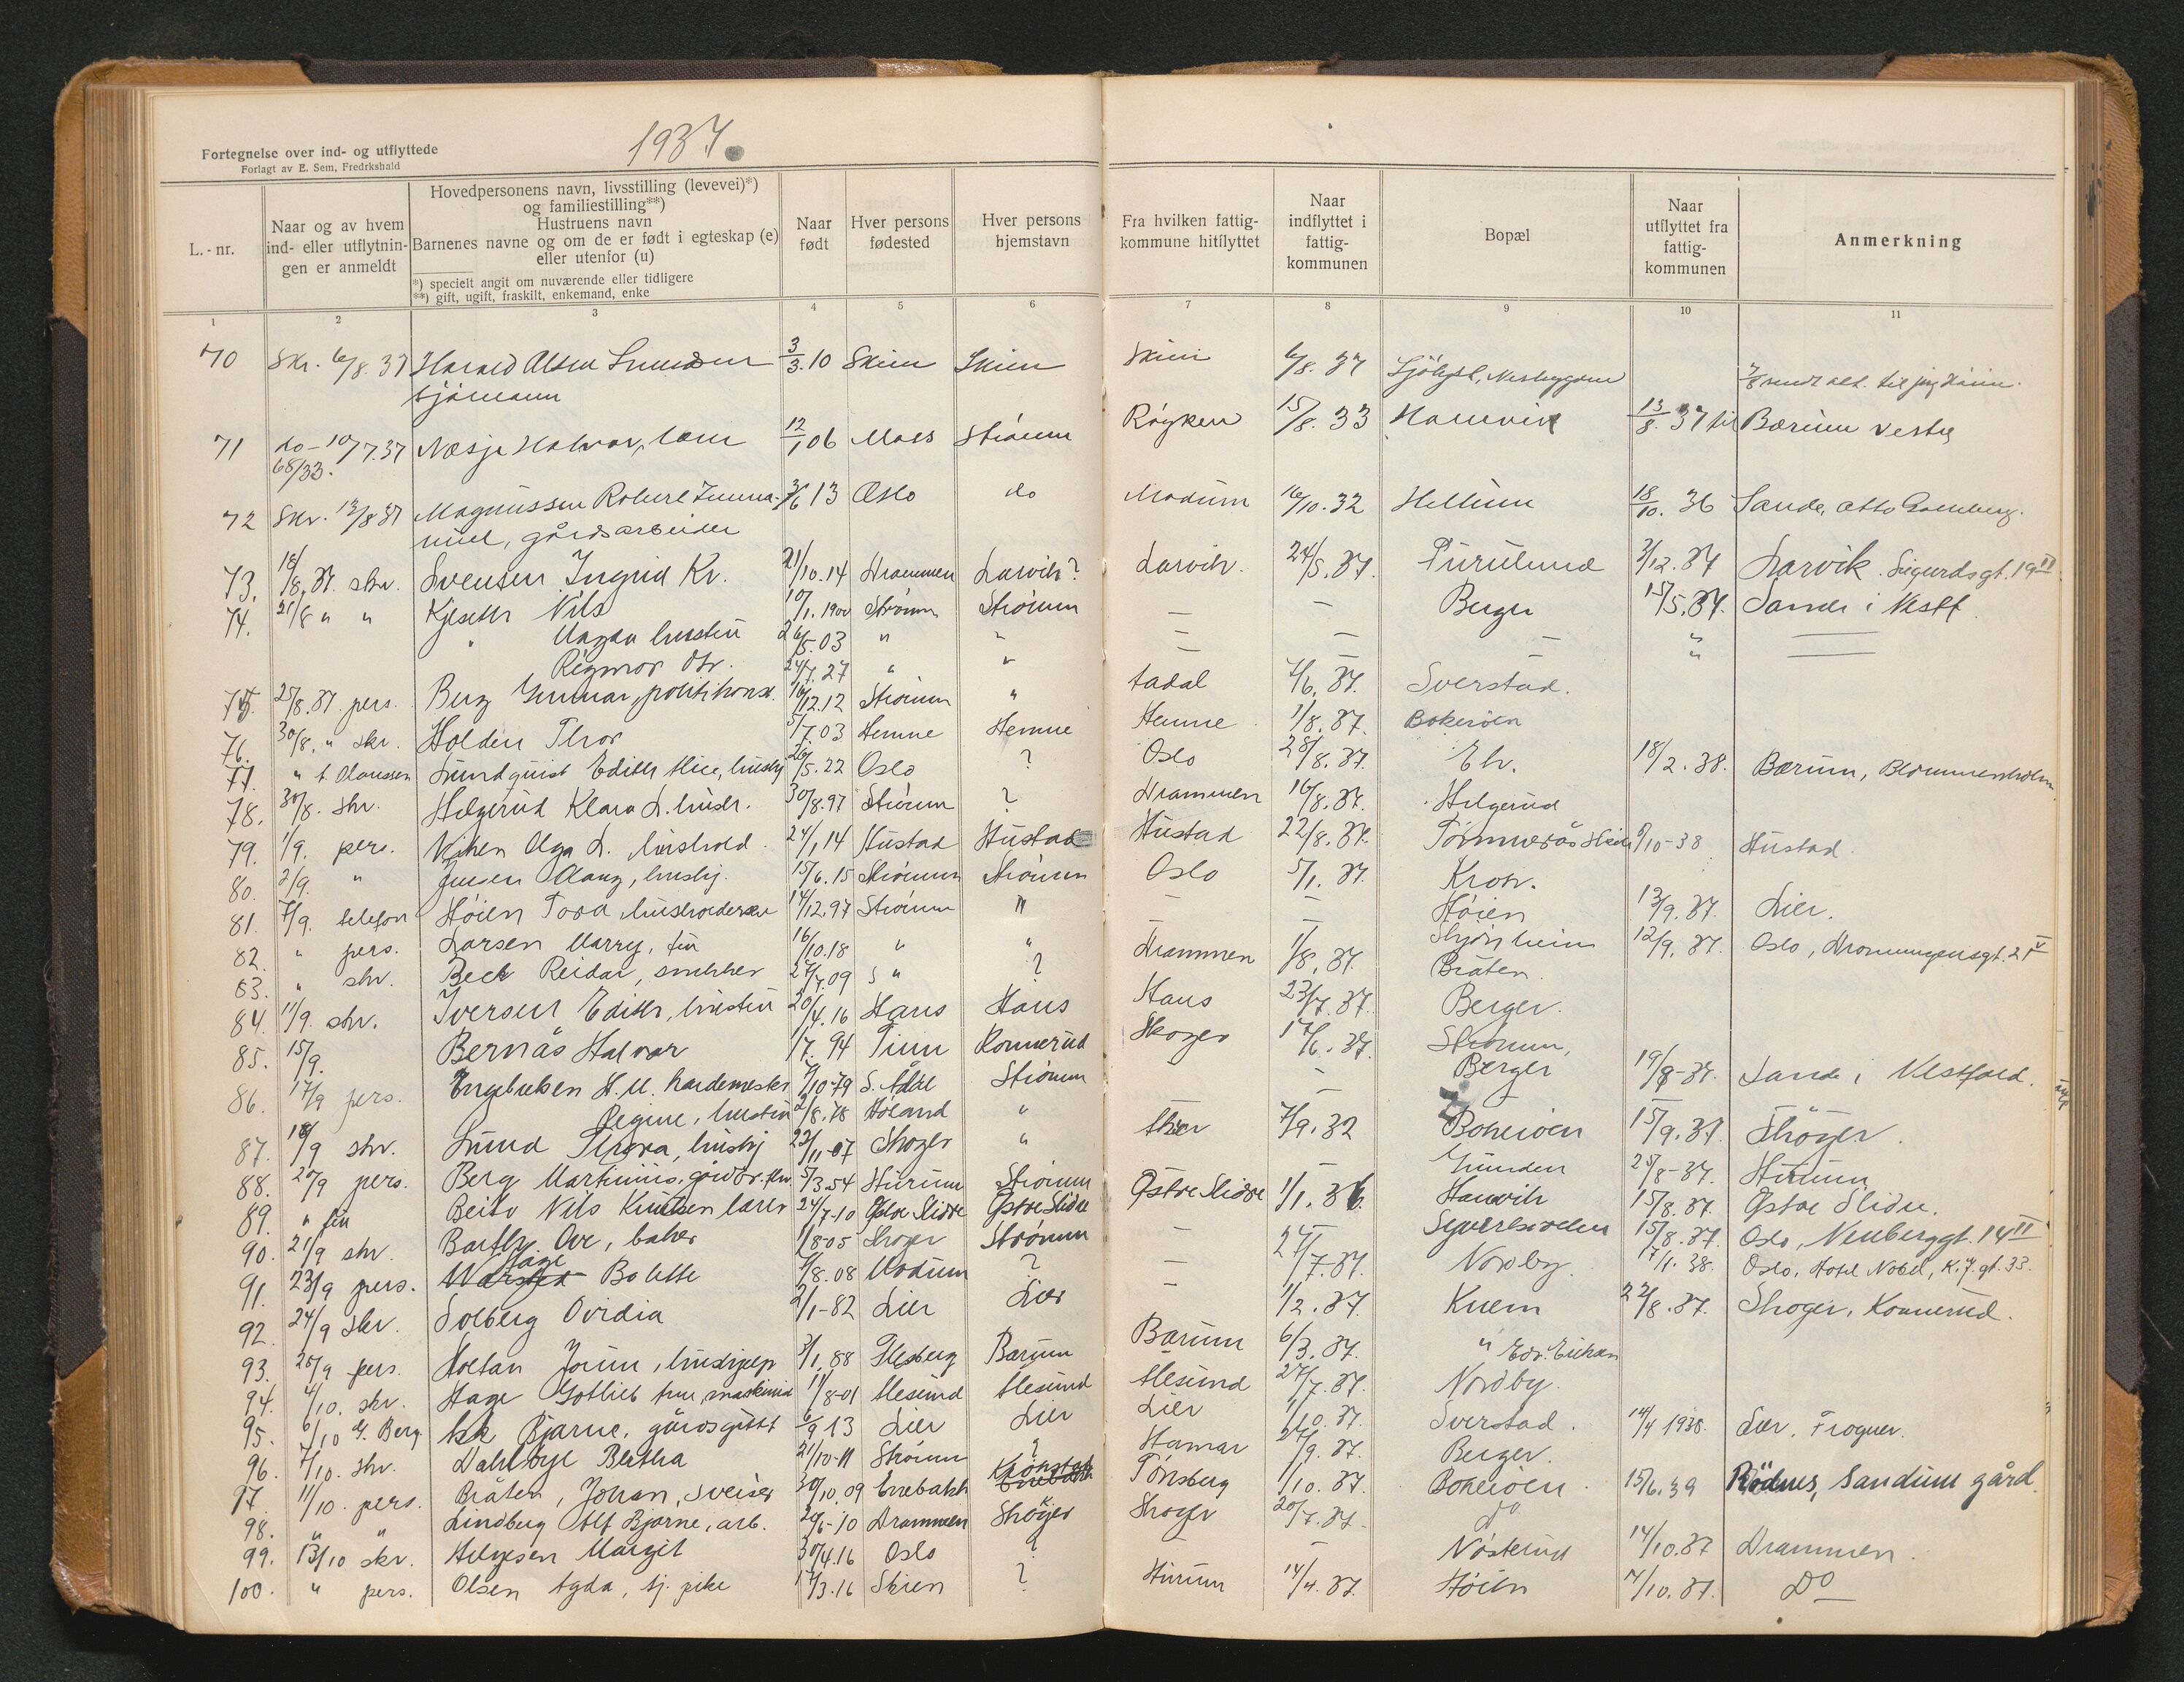 1937.
Fortegnelse over ind- og utflyttede
Forlagt av E. Sem, Fredrkshald
L.-nr.
Naar og av hvem ind- eller utflytnin- gen er anmeldt
Hovedpersonens navn, livsstilling (levevei)*)
og familiestilling**)
Hustruens navn
Barnenes navne og om de er født i egteskap (e)
eller utenfor (u)
*) specielt angit om nuværende eller tidligere
**) gift, ugift, fraskilt, enkemand, enke
Naar født
Hver persons fødested
Hver persons hjemstavn
Fra hvilken fattig- kommune hitflyttet
Naar indflyttet i fattig- kommunen
Bopæl
Naar utflyttet fra fattig- kommunen
Anmerkning
1 2 3 4 5 6 7 8 9 10 11
70 Skr. 6/8.37 Harald Olsen 3/3.10 Skien Skien Skien 6/8.37
sjömann
71 do - 10/7.37 Næsje Halvor, 12/1 06 Moss Strömm Røyken 15/8.33 Hamvik 13/8.37 til Bærum vestre
68/33.
72 Skr. 13/8 37 Magnussen Robert 13 Oslo do Modum 16/10.32 Hellum 18/10.36 Sande, Otto
nuel, gårdsarbeider
73. 18/8.37. skr. Svensen Ingrid Kr. 21/10.14 Drammen Larvik? Larvik. 24/5.37. Furulund 3/12.37 Larvik. Sigurdsgt. 19 II
74. 21/8 " " Kjeseth Nils 10/1.1900 Strömm Strömm — — Berger 15/5.37. Sande i Vestf.
" Magda hustru 26/5.03 " " — — — "
Rigmor dtr. 24/7.27 " " — — "
75. 25/8.37. pers. Berg Gunnar, politikonst. 16/12.12 Strömm " Aadal 7/6.37. Sverstad.
76. 30/8. " skr. Holden Thor 5/7.03 Hemne Hemne Hemne 1/8.37. Bokerøen
77. " t. Olaussen Lundquist Edith Alice, hushj 26/5.22 Oslo ? Oslo 28/8.37. Ek. 18/2.38. Bærum, Blommenholm
78. 30/8. skr. Helgerud Klara L. 30/8.97 Strömm ? Drammen 16/8.37. Helgerud
79. 1/9. pers. Viken Olga L. hushold. 24/1.14 Hustad Hustad Hustad 22/8.37. Tömmerås 9/10-38 Hustad.
80. 2/9. " Jensen hushj. 15/6.15 Strömm Strömm Oslo 5/1.37. Krok.
81. 7/9. telefon Höien Tora husholderske 14/12.97 Strömm " — — Höien 13/9.37. Lier.
82. " pers. Larsen Marry, frk 16/10.18 " " — — 12/9.37. Oslo, Dronningensgt. 21 V
83. " skr. Beck Reidar, snekker 27/7.09 S " ? Drammen 1/8.37. Bråten.
84. 11/9. skr. Iversen Edith, hustru 20/4.16 Haus Haus Haus 23/7.37. Berger.
85. 15/9. Bernås Halvar 1/7.94 Konnerud Skoger 17/6.37. Strömm,
86. 17/9 pers. Engebretsen H. M. 7/10-79 Strömm — Berger 19/8-37. Sande i Vestfold.
Regine, hustru 2/8.78 Höland "
87. 18/9 skr. Lund Thora, hushj 23/11-07 Skoger " 7/9.32 Bokerøen 15/9.37 Skoger.
88. 20/9 pers. Berg Martinius, 5/3.54 Hurum Strömm — — Grunden 25/8-37. Hurum
89. " frk Beito Nils Knutsen lærer 24/7-10 Østre Slidre Østre Slidre Østre Slidre 1/1.36. Hamvik 15/8.37. Østre Slidre.
90. 21/9 skr. Barth Ove, baker 1/8-05 Skoger Strömm — — 15/8.37. Oslo, Neuberggt. 14 II
91. 23/9 pers. Hage Bolette 4/8.08 Modum ? — 27/7.37. Nordby. 17/1.38. Oslo, Hotel Nobel, K. J. gt. 33.
92. 24/9 skr. Solberg Ovidia 2/1-82 Lier Lier — 1/2.37. Knem 22/8.37. Skoger, Konnerud.
93. 28/9 pers. Holtan Jorun, hushjelp 3/1.88 Flesberg Bærum Bærum 6/3.37. "
94. 4/10. skr. Hage Gotlieb 11/8-01 Alesund Alesund Alesund 27/7.37. Nordby.
95. 6/10 G. Berg Ask Bjarne, gårdsgutt 6/9 13 Lier Lier Lier 1/10.37. Sverstad. 14/4 1938. Lier, Frogner.
96. 7/10. skr. Dahlbye Bletha 21/10-11 Strömm ? Hamar 27/9.37. Berger.
97 11/10. pers. Bråten, Johan, sveiser 30/10.09 Enebakk Tønsberg 1/10.37. Bokerøen. 15/6.39 Rödnes, Sandum gård.
98. " " Lindberg Alf Bjarne, arb. 20/6-10 Drammen Skoger Skoger 20/7.37. do
99. 13/10 skr. Helgesen Margit 30/4.16 Oslo ? — — Nösterud 14/10.37 Drammen.
100. " pers. Olsen Agda, tj. pike 17/3.16 Skien ? Hurum 14/4.37. Höien 7/10.37. Do